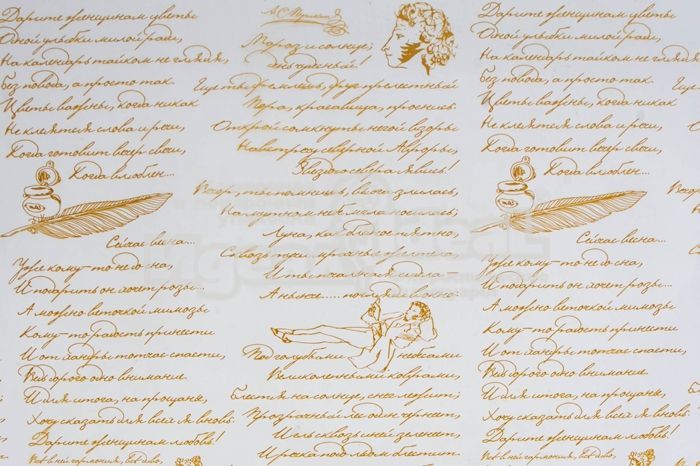 Дарите женщинам цветы
Одной улыбки милой ради,
На календарь тайком не глядя,
Без повода, а просто так.
Цветы важны, когда никак
Не клеятся слова и речи,
Когда готовит вечер свечи,
Когда влюблен...
Сейчас весна...
Уже кому-то не до сна,
И подарить он хочет розы...
А можно веточкой мимозы
Кому-то радость принести
И от хандры тотчас спасти,
Ведь дорого одно внимание.
И для итога, на прощанье,
Хочу сказать для всей я вновь:
Дарите женщинам любовь!
Мороз и солнце;
день чудный!
Еще ты дремлешь, друг прелестный
Пора, красавица, проснись:
Открой сомкнуты негой взоры
Навстречу северной Авроры,
Звездою севера явись!
Вечор, ты помнишь, вьюга злилась,
На мутном небе мгла носилась;
Луна, как бледное пятно,
Сквозь тучи мрачные желтела,
И ты печальная сидела —
А нынче..... погляди в окно:
Под голубыми небесами
Великолепными коврами,
Блестя на солнце, снег лежит;
Прозрачный лес один чернеет,
И ель сквозь иней зеленеет,
И речка подо льдом блестит.
Дарите женщинам цветы
Одной улыбки милой ради,
На календарь тайком не глядя,
Без повода, а просто так.
Цветы важны, когда никак
Не клеятся слова и речи,
Когда готовит вечер свечи,
Когда влюблен...
Сейчас весна...
Уже кому-то не до сна,
И подарить он хочет розы...
А можно веточкой мимозы
Кому-то радость принести
И от хандры тотчас спасти,
Ведь дорого одно внимание.
И для итога, на прощанье,
Хочу сказать для всей я вновь:
Дарите женщинам любовь!